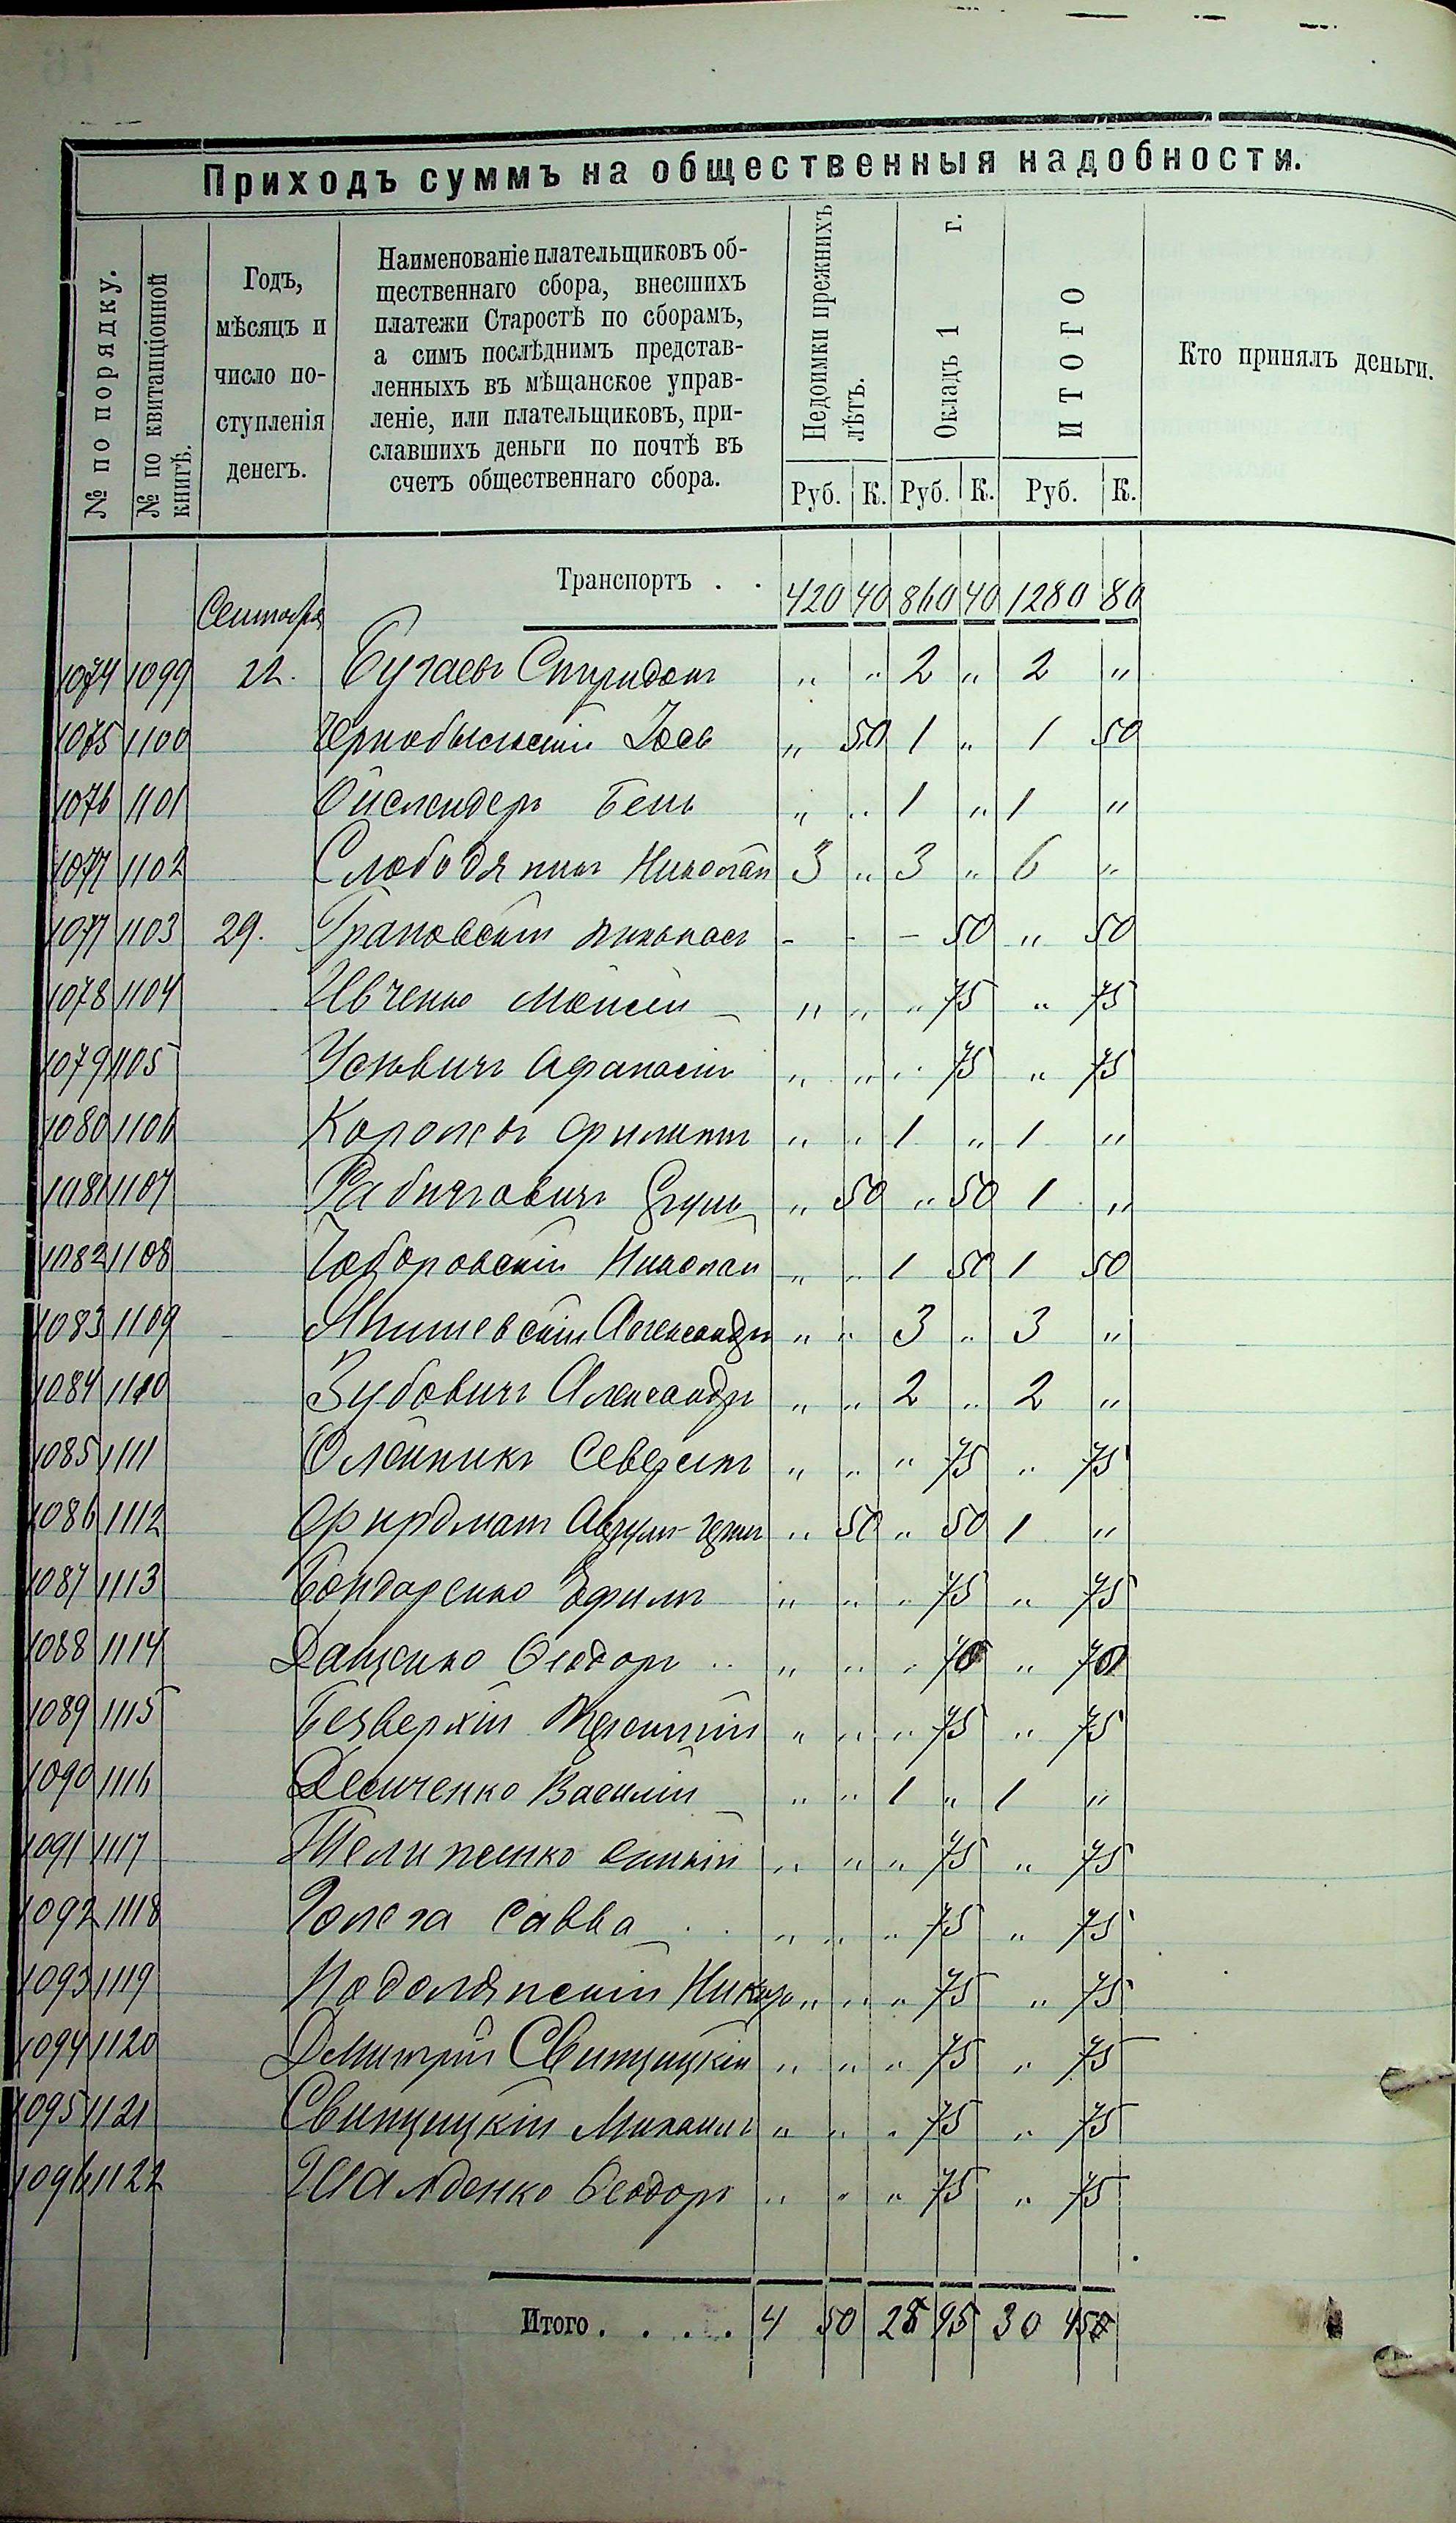 Приходъ суммъ на общественныя надобности.
№ по порядку.
№ по квитанціонной книгѣ.
Годъ,
мѣсяцъ и
число по-
ступленія
денегъ.
Наименованіе плательщиковъ об-
щественнаго сбора, внесшихъ
платежи Старостѣ по сборамъ,
а симъ послѣднимъ представ-
ленныхъ въ мѣщанское управ-
леніе, или плательщиковъ, при-
славшихъ деньги по почтѣ въ
счетъ общественнаго сбора.
Недоимки прежнихъ лѣтъ.
Окладъ 1 г.
ИТОГО
Кто принялъ деньги.
Руб. К. Руб. К. Руб. К.
Транспортъ . . 420 40 860 40 1280 80
Сентября
1074 1099 22. Бугаевъ Спиридонъ " " 2 " 2 "
1075 1100 Чернобыльскій Іось " 50 1 " 1 50
1076 1101 Ойслендеръ Бень " " 1 " 1 "
1077 1102 Слободяникъ Николай 3 " 3 " 6 "
1077 1103 29. Грановскій - - - 50 " 50
1078 1104 Ивченко Моисей " " " 75 " 75
1079 1105 Усневичъ Афанасій " " " 75 " 75
1080 1106 Филиппъ " " 1 " 1 "
1081 1107 Рабиновичъ " 50 " 50 1 "
1082 1108 Чеборовскій Николай " " 1 50 1 50
1083 1109 Янишевскій Александръ " " 3 " 3 "
1084 1110 Зубовичъ Александръ " " 2 " 2 "
1085 1111 Олейникъ Северинъ " " " 75 " 75
1086 1112 Фирдманъ " 50 " 50 1 "
1087 1113 Бондаренко Ефимъ " " " 75 " 75
1088 1114 Дащенко Ѳеодоръ " " " 70 " 70
1089 1115 Безверхій " " " 75 " 75
1090 1116 Демченко Василій " " 1 " 1 "
1091 1117 Телипенко " " " 75 " 75
1092 1118 Савва " " " 75 " 75
1093 1119 Подолянскій " " " 75 " 75
1094 1120 Дмитрій Свинцицкій " " " 75 " 75
1095 1121 Свинцицкій Михаилъ " " " 75 " 75
1096 1122 Ѳеодоръ " " " 75 " 75
Итого . . . . 4 50 25 95 30 45